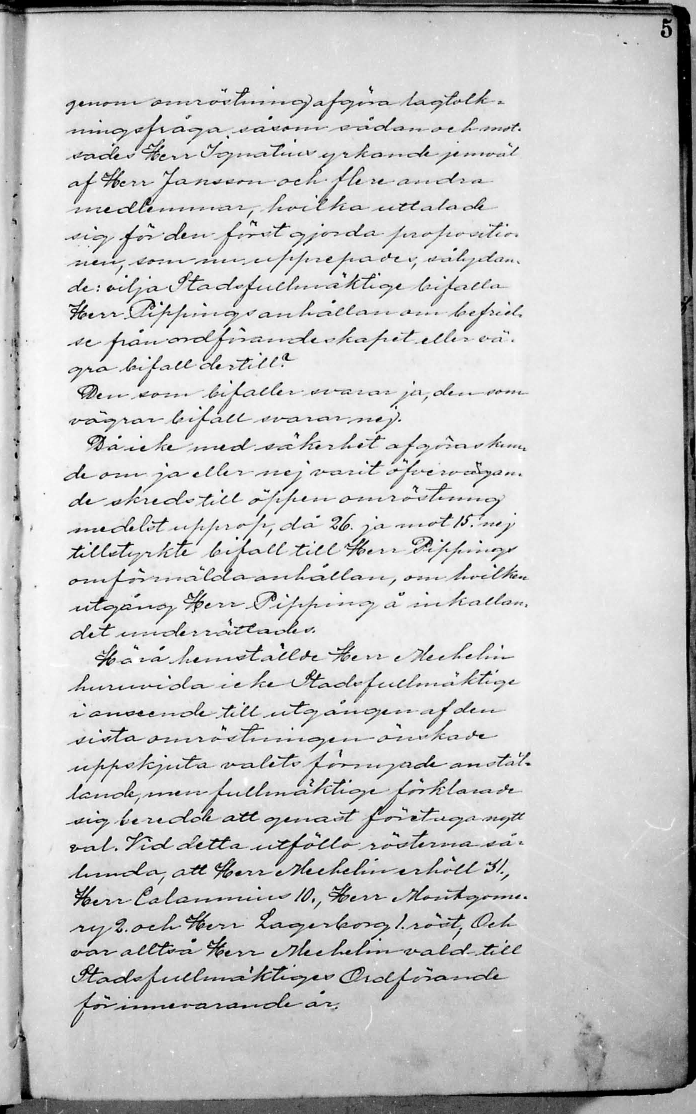 5
genom omröstning afgöra lagtolk-
ningsfråga såsom sådan och mot-
sades Herr Ignatius yrkande jemväl
af Herr Jansson och flere andra
medlemmar, hvilka uttalade
sig för den först gjorda propositio-
nen, som nu upprepades, sålydan-
de: vilja Stadsfullmäktige bifalla
Herr Pippings anhållan om befriel-
se från ordförandeskapet eller vä-
gra bifall dertill?
Den som bifaller svarar ja, den som
vägrar bifall svarar nej.
Då icke med säkerhet afgöras kun-
de om ja eller nej varit öfvervägan-
de skreds till öppen omröstning
medelst upprop, då 26. ja mot 15. nej
tillstyrkte bifall till Herr Pippings
omförmälda anhållan, om hvilken
utgång Herr Pipping å inkallan-
det underrättades.
Härå hemställde Herr Mechelin
huruvida icke Stadsfullmäktige
i anseende till utgången af den
sista omröstningen önskade
uppskjuta valets förnyade anstäl-
lande, men fullmäktige förklarade
sig beredde att genast företaga nytt
val. Vid detta utföllo rösterna så-
lunda, att Herr Mechelin erhöll 31.,
Herr Calamnius 10., Herr Montgome-
ry 2. och Herr Lagerborg 1. röst, Och
var alltså Herr Mechelin vald till
Stadsfullmäktiges Ordförande
för innevarande år.